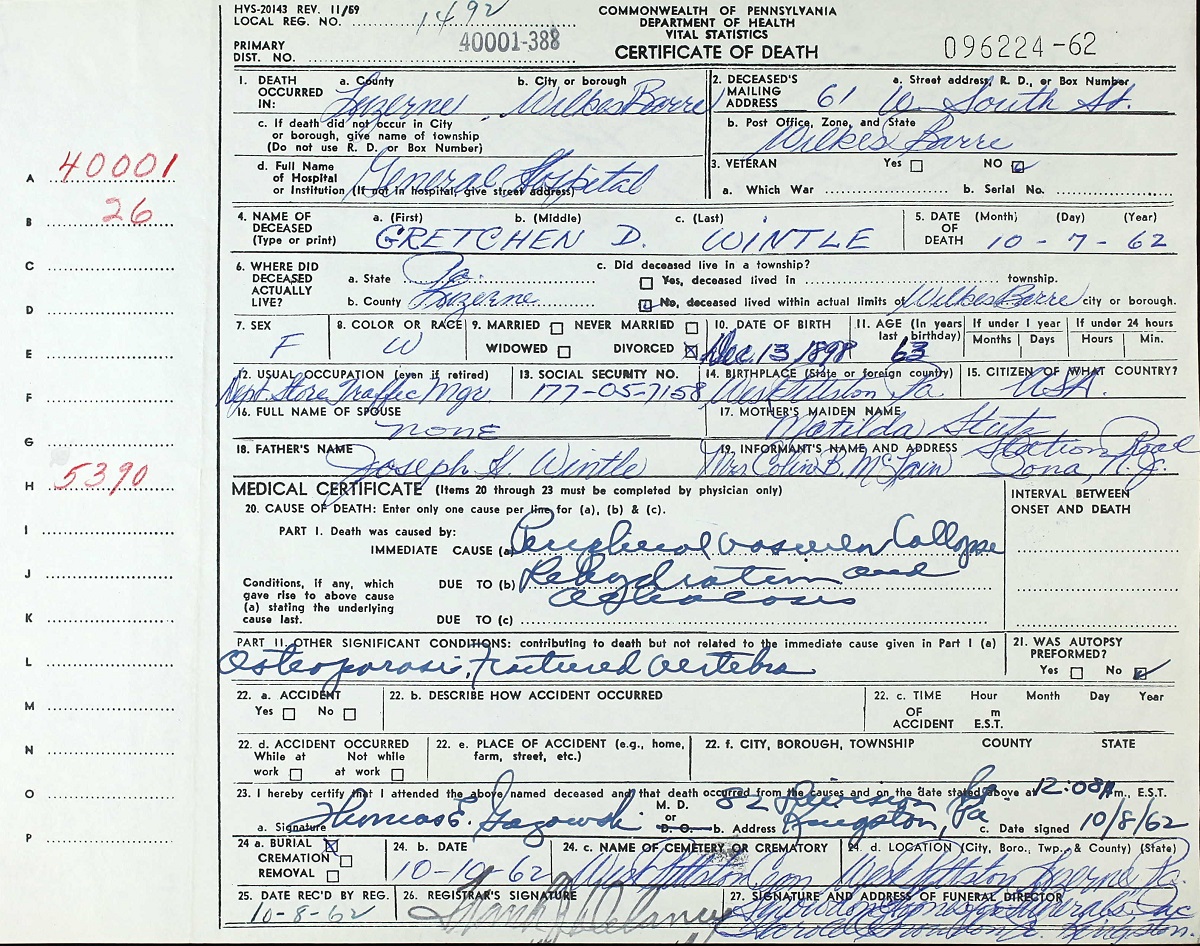 HVS-20143 REV. 11/59
LOCAL REG. NO. 1492
PRIMARY DIST. NO. 40001-388
COMMONWEALTH OF PENNSYLVANIA
DEPARTMENT OF HEALTH
VITAL STATISTICS
CERTIFICATE OF DEATH
096224-62
1. DEATH OCCURRED IN: a. County Luzerne b. City or borough Wilkes Barre
c. If death did not occur in City or borough, give name of township (Do not use R. D. or Box Number)
d. Full Name of Hospital or Institution (If not in hospital, give street address) General Hospital
2. DECEASED'S MAILING ADDRESS a. Street address, R. D., or Box Number 61 W. South St.
b. Post Office, Zone, and State Wilkes Barre
3. VETERAN Yes NO
a. Which War b. Serial No.
4. NAME OF DECEASED (Type or print) a. (First) GRETCHEN b. (Middle) D. c. (Last) WINTLE
5. DATE OF DEATH (Month) (Day) (Year) 10-7-62
6. WHERE DID DECEASED ACTUALLY LIVE? a. State Pa.
b. County Luzerne
c. Did deceased live in a township?
Yes, deceased lived in township.
No, deceased lived within actual limits of Wilkes Barre city or borough.
7. SEX F
8. COLOR OR RACE W
9. MARRIED NEVER MARRIED
WIDOWED DIVORCED
10. DATE OF BIRTH Dec. 13 1898
11. AGE (In years last birthday) 63
If under 1 year Months Days
If under 24 hours Hours Min.
12. USUAL OCCUPATION (even if retired) Dept. Store Traffic Mgr
13. SOCIAL SECURITY NO. 177-05-7158
14. BIRTHPLACE (State or foreign country) West Pittston, Pa.
15. CITIZEN OF WHAT COUNTRY? USA.
16. FULL NAME OF SPOUSE none
17. MOTHER'S MAIDEN NAME Matilda Stutz
18. FATHER'S NAME Joseph H. Wintle
19. INFORMANT'S NAME AND ADDRESS Mrs Colin B. Station Road
N. J.
MEDICAL CERTIFICATE (Items 20 through 23 must be completed by physician only)
INTERVAL BETWEEN ONSET AND DEATH
20. CAUSE OF DEATH: Enter only one cause per line for (a), (b) & (c).
PART I. Death was caused by:
IMMEDIATE CAUSE (a) Peripheral Vascular Collapse
Conditions, if any, which gave rise to above cause (a) stating the underlying cause last.
DUE TO (b) Dehydration and
acidosis
DUE TO (c)
PART II. OTHER SIGNIFICANT CONDITIONS: contributing to death but not related to the immediate cause given in Part I (a)
Osteoporosis, Fractured Vertebra
21. WAS AUTOPSY PREFORMED?
Yes No
22. a. ACCIDENT
Yes No
22. b. DESCRIBE HOW ACCIDENT OCCURRED
22. c. TIME OF ACCIDENT Hour Month Day Year
m E.S.T.
22. d. ACCIDENT OCCURRED
While at work Not while at work
22. e. PLACE OF ACCIDENT (e.g., home, farm, street, etc.)
22. f. CITY, BOROUGH, TOWNSHIP COUNTY STATE
23. I hereby certify that I attended the above named deceased and that death occurred from the causes and on the date stated above at 12:08A m., E.S.T.
a. Signature Thomas E. M. D. or D. O. b. Address 82 Division St. Kingston, Pa c. Date signed 10/8/62
24 a. BURIAL
CREMATION
REMOVAL
24. b. DATE 10-10-62
24. c. NAME OF CEMETERY OR CREMATORY West Pittston Cem
24. d. LOCATION (City, Boro., Twp., & County) (State) West Pittston Luzerne Pa.
25. DATE REC'D BY REG. 10-8-62
26. REGISTRAR'S SIGNATURE
27. SIGNATURE AND ADDRESS OF FUNERAL DIRECTOR
Kingston.
A 40001
B 26
C
D
E
F
G
H 5390
I
J
K
L
M
N
O
P